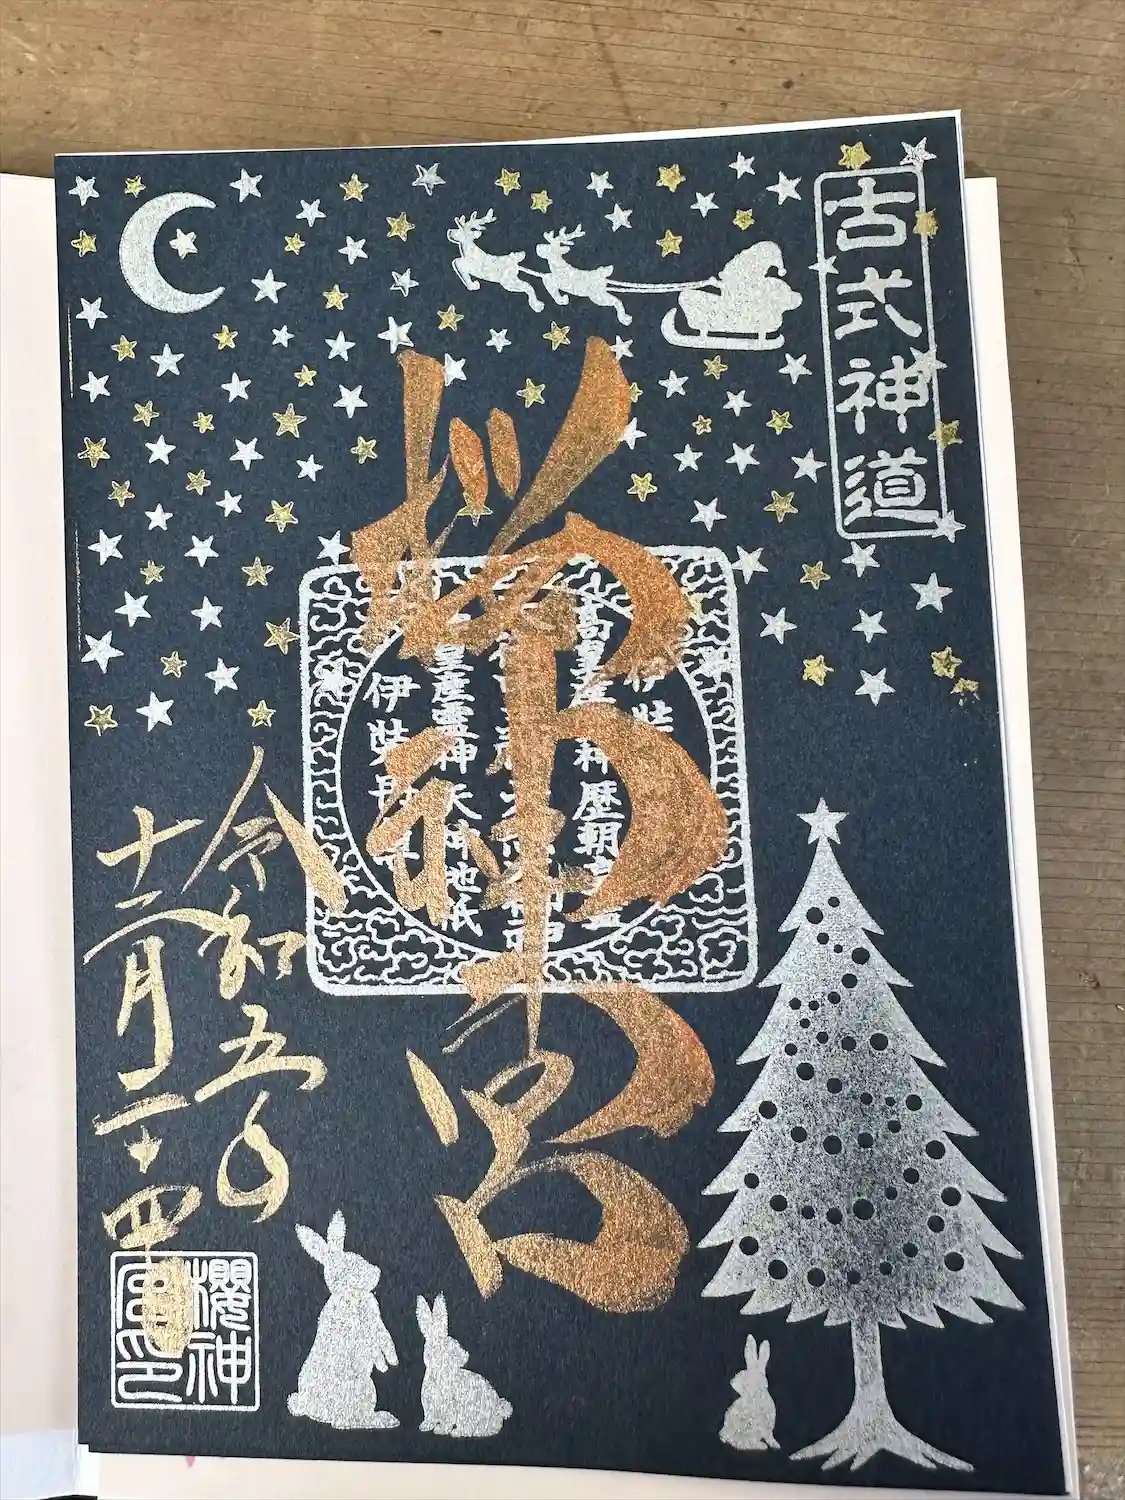 古式神道
桜神宮
伊弉
高皇産
神歴朝
皇産霊神天神地祇
伊弉
令和五年
十二月二十四日
櫻神
宮印